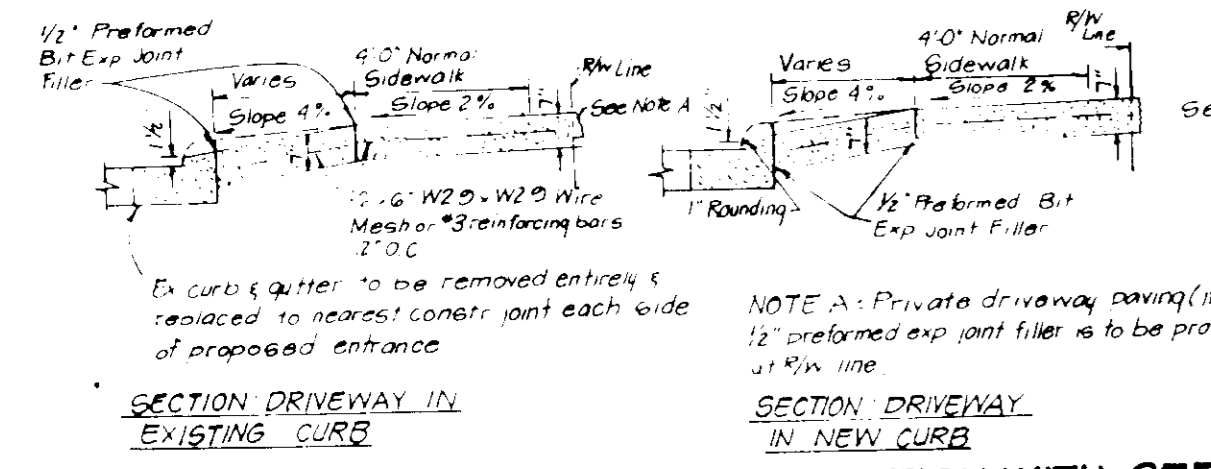 1/2" Preformed
Bit Exp Joint
Filler
Varies
Slope 4%
4'-0" Normal
Sidewalk
Slope 2%
7"
R/W Line
See Note A
1 1/2
7"
6" W2.9 x W2.9 Wire
Mesh or #3 reinforcing bars
O.C
Ex curb & gutter to be removed entirely &
replaced to nearest constr joint each side
of proposed entrance
SECTION DRIVEWAY IN
EXISTING CURB
R/W
Line
4'-0" Normal
Sidewalk
Varies
Slope 4%
Slope 2%
7"
1 1/2
7"
1" Rounding
1/2" Preformed Bit
Exp Joint Filler
NOTE A: Private driveway paving
1/2" preformed exp joint filler is to be
at R/W line
SECTION DRIVEWAY
IN NEW CURB
WITH